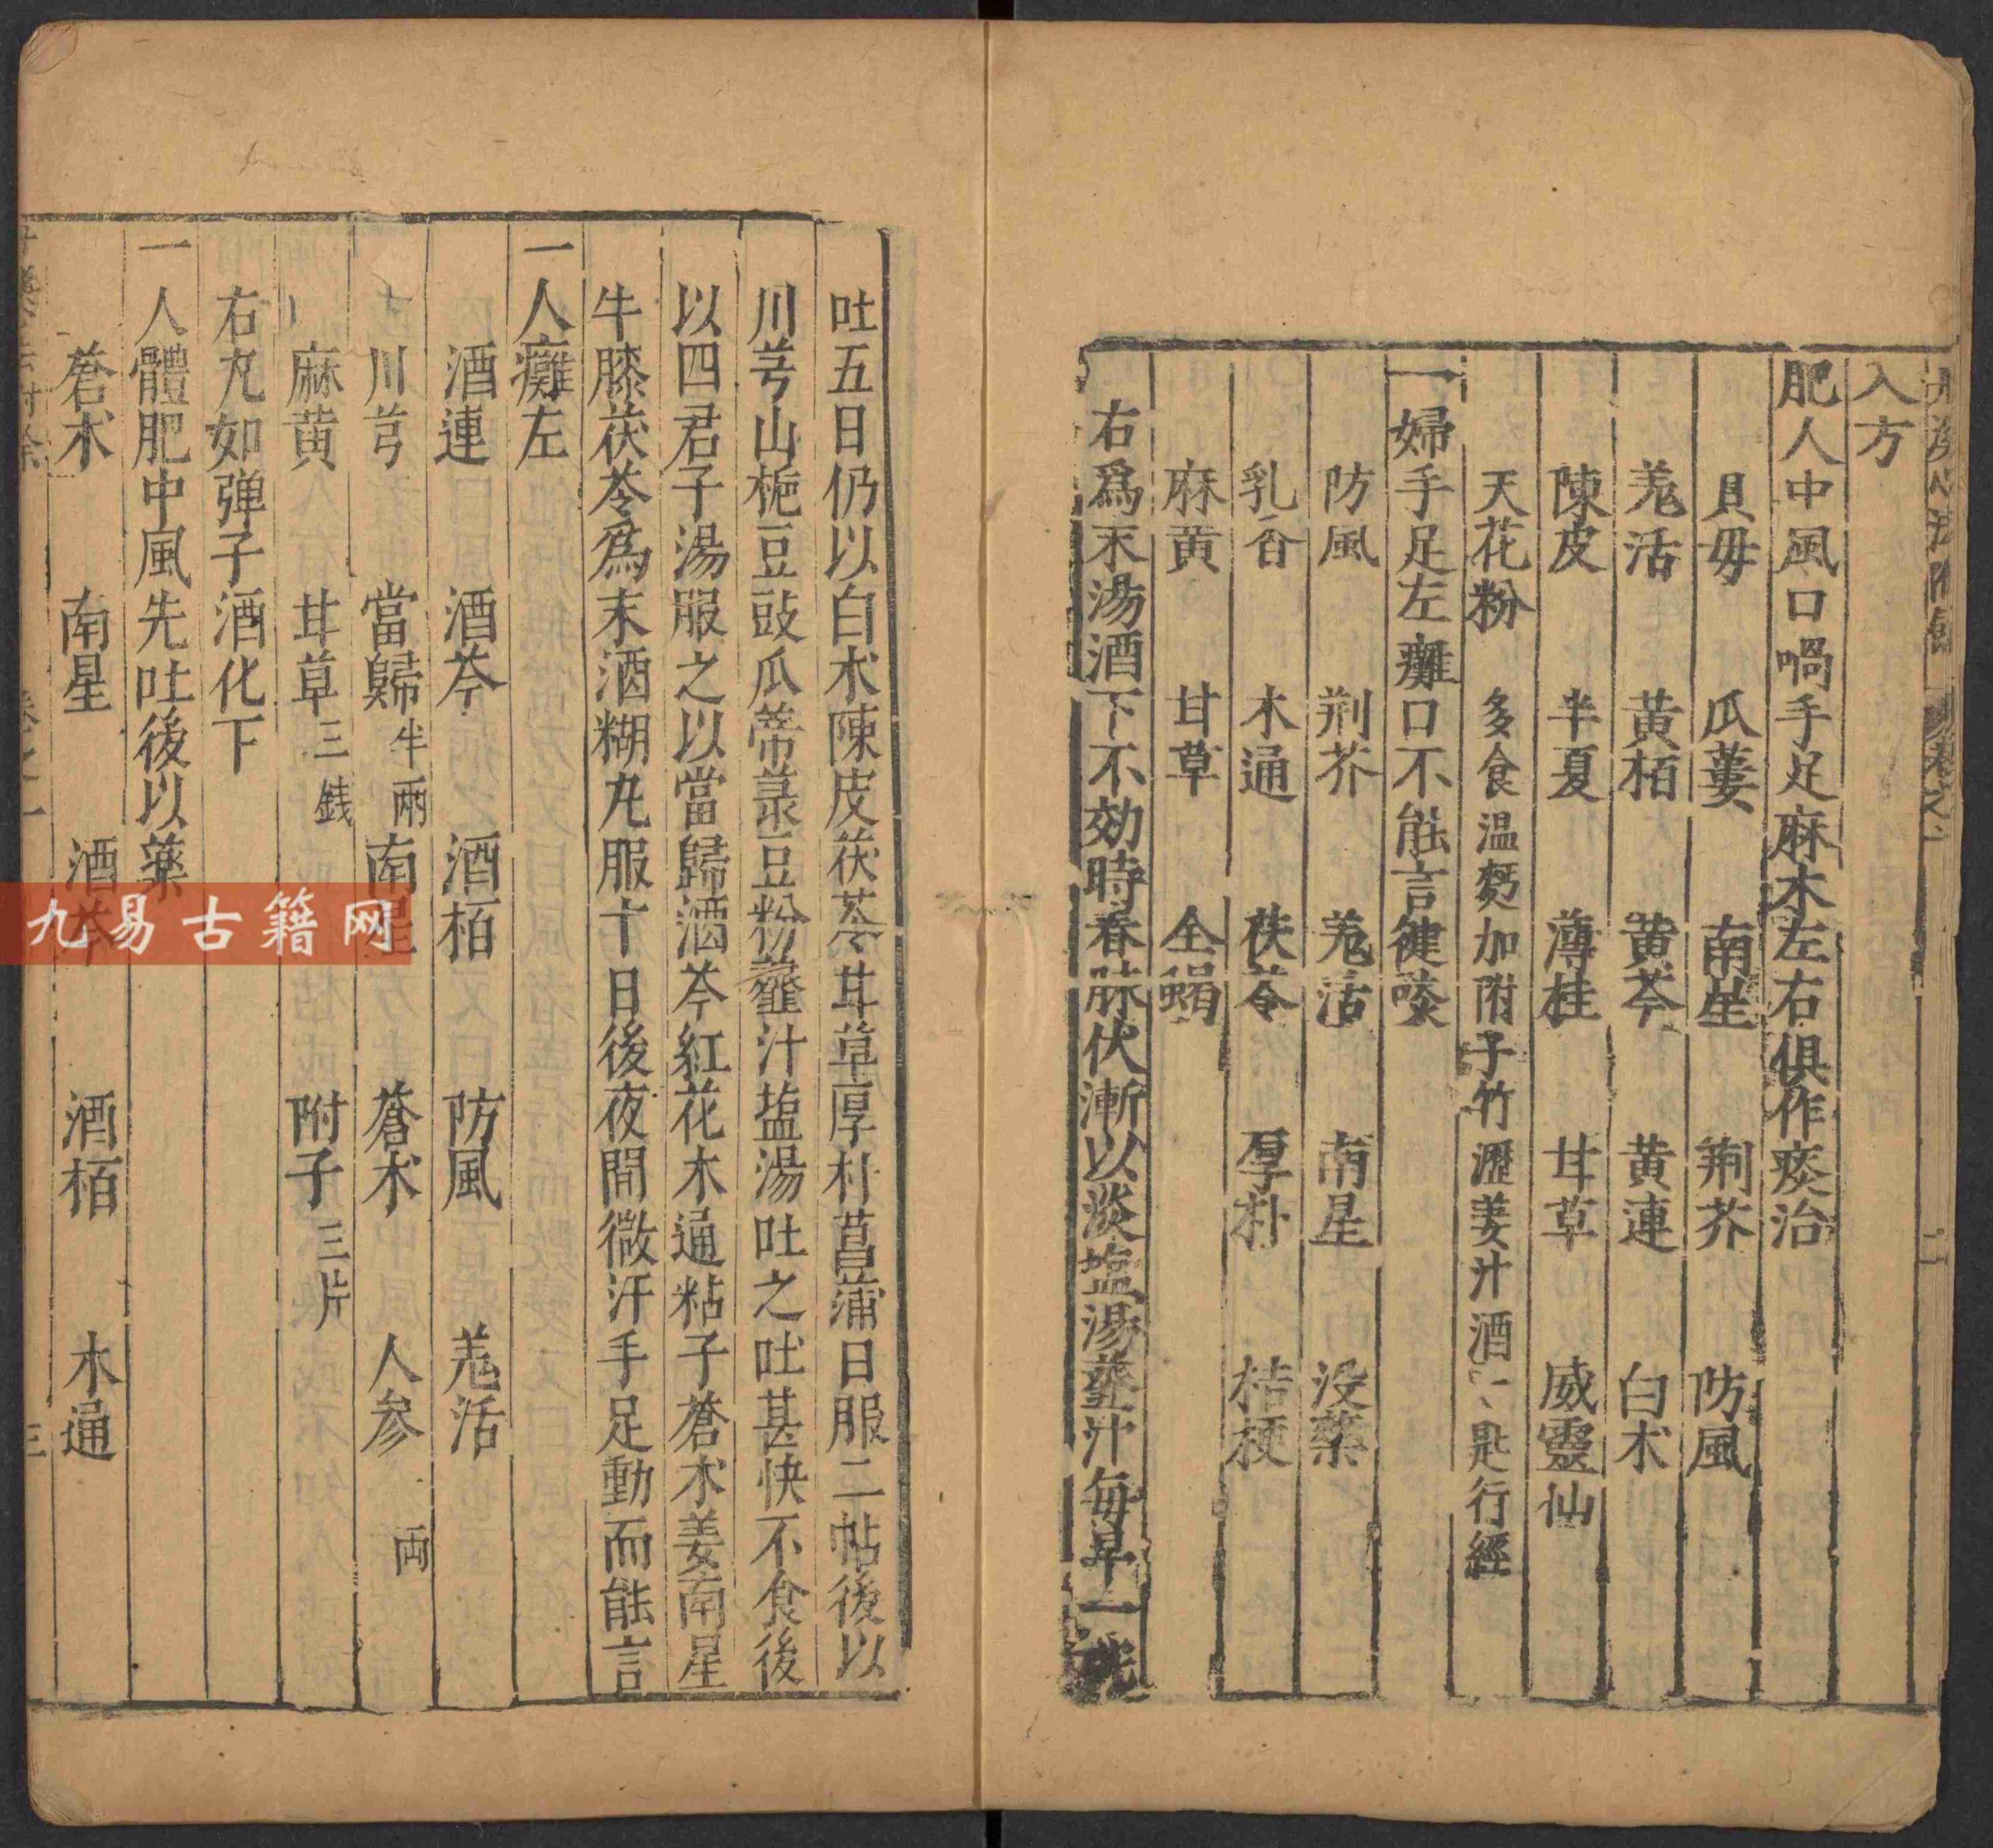 入方
肥人中風口喎手足麻木左右俱作痰治
貝母　瓜蔞　南星　荆芥　防風
羗活　黄栢　黄芩　黄連　白朮
陳皮　半夏　薄桂　甘草　威靈仙
天花粉　多食温麪加附子竹瀝姜汁酒一匙行經
一婦手足左癱口不能言健啖
防風　荆芥　羗活　南星　没藥
乳香　木通　茯苓　厚朴　桔梗
麻黄　甘草　全蝎
右爲末湯酒下不効時春脉伏漸以淡塩湯虀汁每早一碗
吐五日仍以白朮陳皮茯苓甘草厚朴菖蒲日服二帖後以
川芎山梔豆豉瓜蒂菉豆粉虀汁塩湯吐之吐甚快不食後
以四君子湯服之以當歸酒芩紅花木通粘子蒼朮姜南星
牛膝茯苓爲末酒糊丸服十日後夜間微汗手足動而能言
一人癱左
酒連　酒芩　酒栢　防風　羗活
川芎　當歸半兩　南星　蒼朮　人参　両
麻黄　甘草三銭　附子三片
右丸如弹子酒化下
一人體肥中風先吐後以藥
蒼朮　南星　酒芩　酒栢　木通
三
九易古籍网